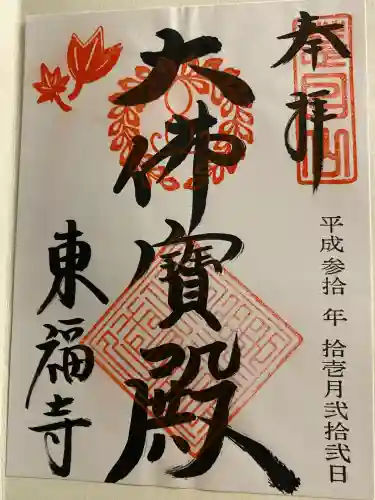 奉拝
平成参拾年拾壱月弐拾弐日
大佛寳殿
東福寺